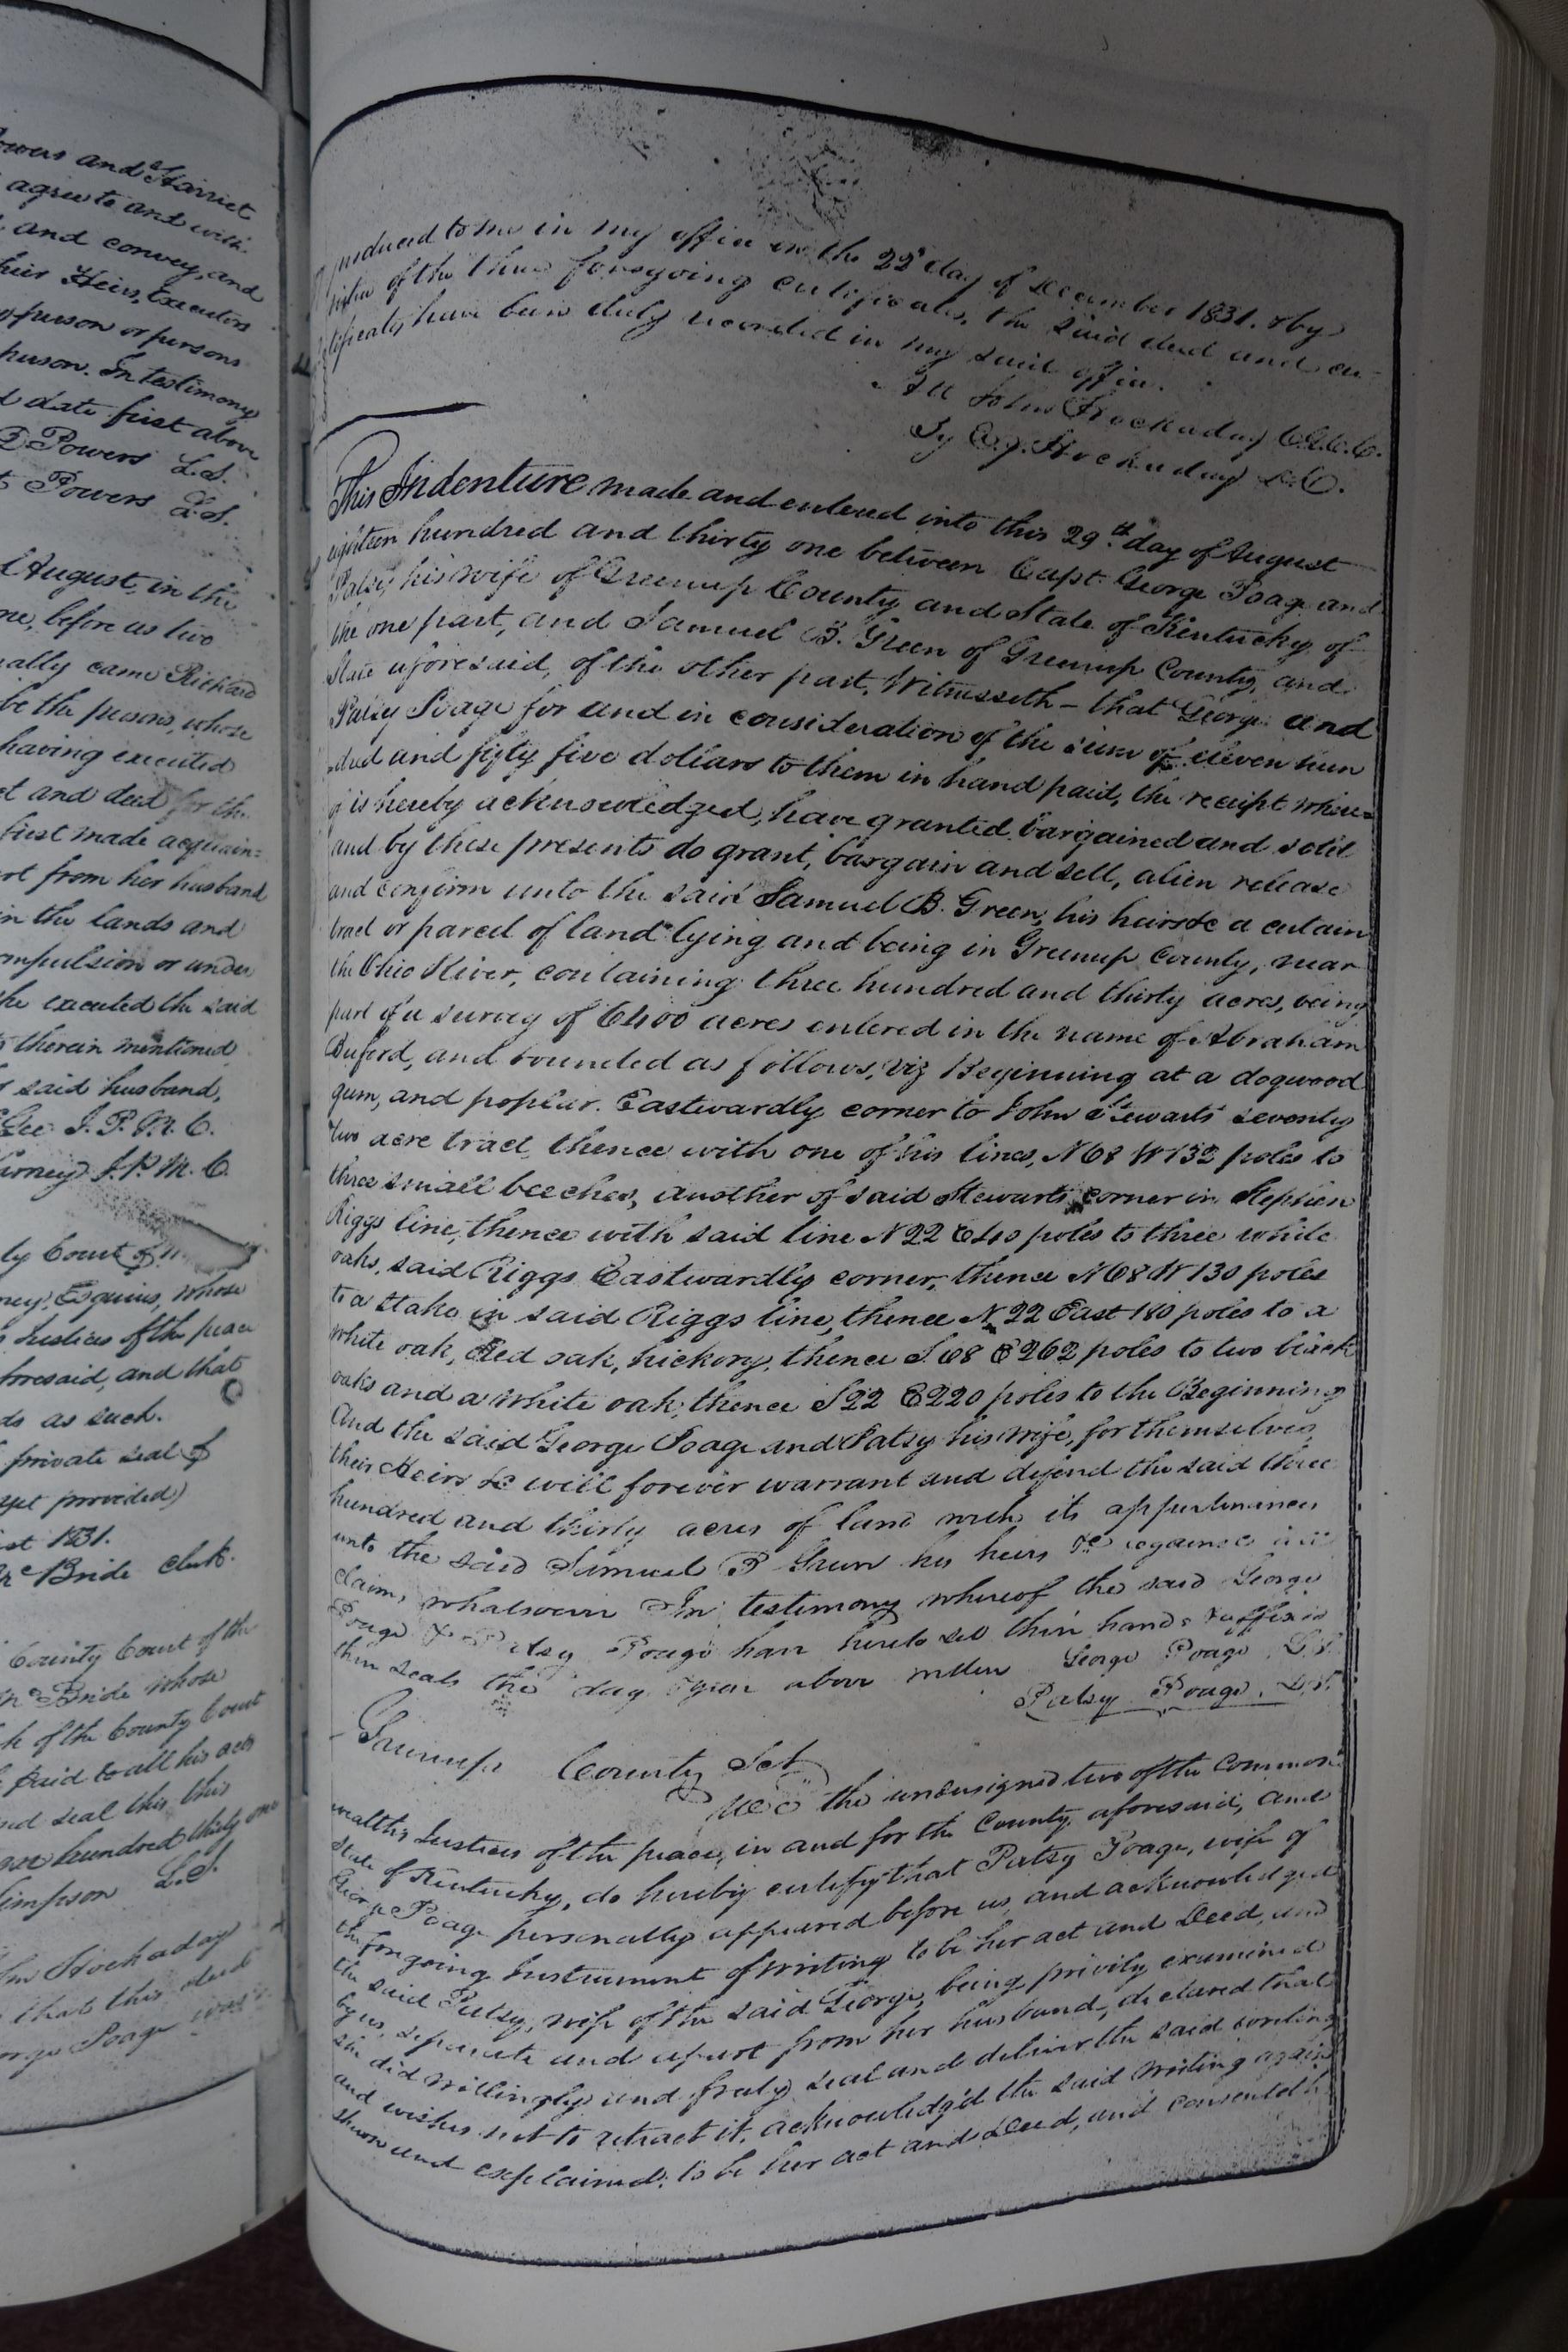 owers and Harriet
agree to and with
and convey, and
their Heirs, Executors
person or persons
person. In testimony
date first above
Powers L.S.
Powers L.S.
August, in the
me, before us two
ally came Richard
be the persons, whose
having executed
ct and deed for the
first made acquain=
rt from her husband
in the lands and
mpulsion or under
she executed the said
therein mentioned
said husband,
Lee J. P. M. C.
J. P. M. C.
ty Court of
Esquires, whose
Justices of the peace
foresaid, and that
ds as such.
private seal of
yet provided)
st 1831.
McBride clerk.
County Court of the
McBride whose
k of the County Court
said to all his acts
nd seal this this
hundred thirty one
Simpson L.S.
John Hockaday
that this deed
orge Poage was
produced to me in my office on the 22d day of December 1831. & by
virtue of the three foregoing certificates, the said deed and cer-
tificates have been duly recorded in my said office.
Att John Hockaday C.G.C.C.
By Hockaday D.C.
This Indenture made and entered into this 29th day of August
eighteen hundred and thirty one between Capt. George Poage and
Patsy his wife of Greenup County and State of Kentucky of
the one part, and Samuel B. Green of Greenup County, and
State aforesaid, of the other part, Witnesseth - that George and
Patsy Poage for and in consideration of the sum of eleven hun
dred and fifty five dollars to them in hand paid, the receipt where=
of is hereby acknowledged, have granted bargained and sold
and by these presents do grant, bargain and sell, alien release
and confirm unto the said Samuel B. Green, his heirs &c a certain
tract or parcel of land lying and being in Greenup County, near
the Ohio River, containing three hundred and thirty acres, being
part of a survey of 6400 acres entered in the name of Abraham
Buford, and bounded as follows, viz Beginning at a dogwood
gum, and poplar. Eastwardly corner to John Stewarts seventy
two acre tract, thence with one of his lines, N68 W132 poles to
three small beeches, another of said Stewarts corner in Stephen
Riggs line, thence with said line N22 E40 poles to three white
oaks, said Riggs Eastwardly corner, thence N68 W130 poles
to a stake in said Riggs line, thence N22 East 180 poles to a
white oak, Red oak, hickory, thence S.68 E262 poles to two black
oaks and a white oak; thence S22 E220 poles to the Beginning
And the said George Poage and Patsy his wife, for themselves,
their Heirs &c will forever warrant and defend the said three
hundred and thirty acres of land with its appurtenances
unto the said Samuel B Green his heirs &c against all
claims whatsoever In testimony whereof the said George
Poage & Patsy Poage have hereto set their hands & affixed
their seals the day & year above written George Poage L.S.
Patsy Poage. L.S.
Greenup County Sct
We the undersigned two of the common-
wealths Justices of the peace, in and for the County aforesaid, and
State of Kentucky, do hereby certify that Patsy Poage, wife of
George Poage personally appeared before us, and acknowledged
the forgoing Instrument of writing to be her act and Deed, and
the said Patsy, wife of the said George, being privily examined
by us, separate and apart from her husband, declared that
she did willingly and freely seal and deliver the said writing
and wishes not to retract it, acknowledg'd the said writing again
shown and explained: to be her act and Deed, and consented